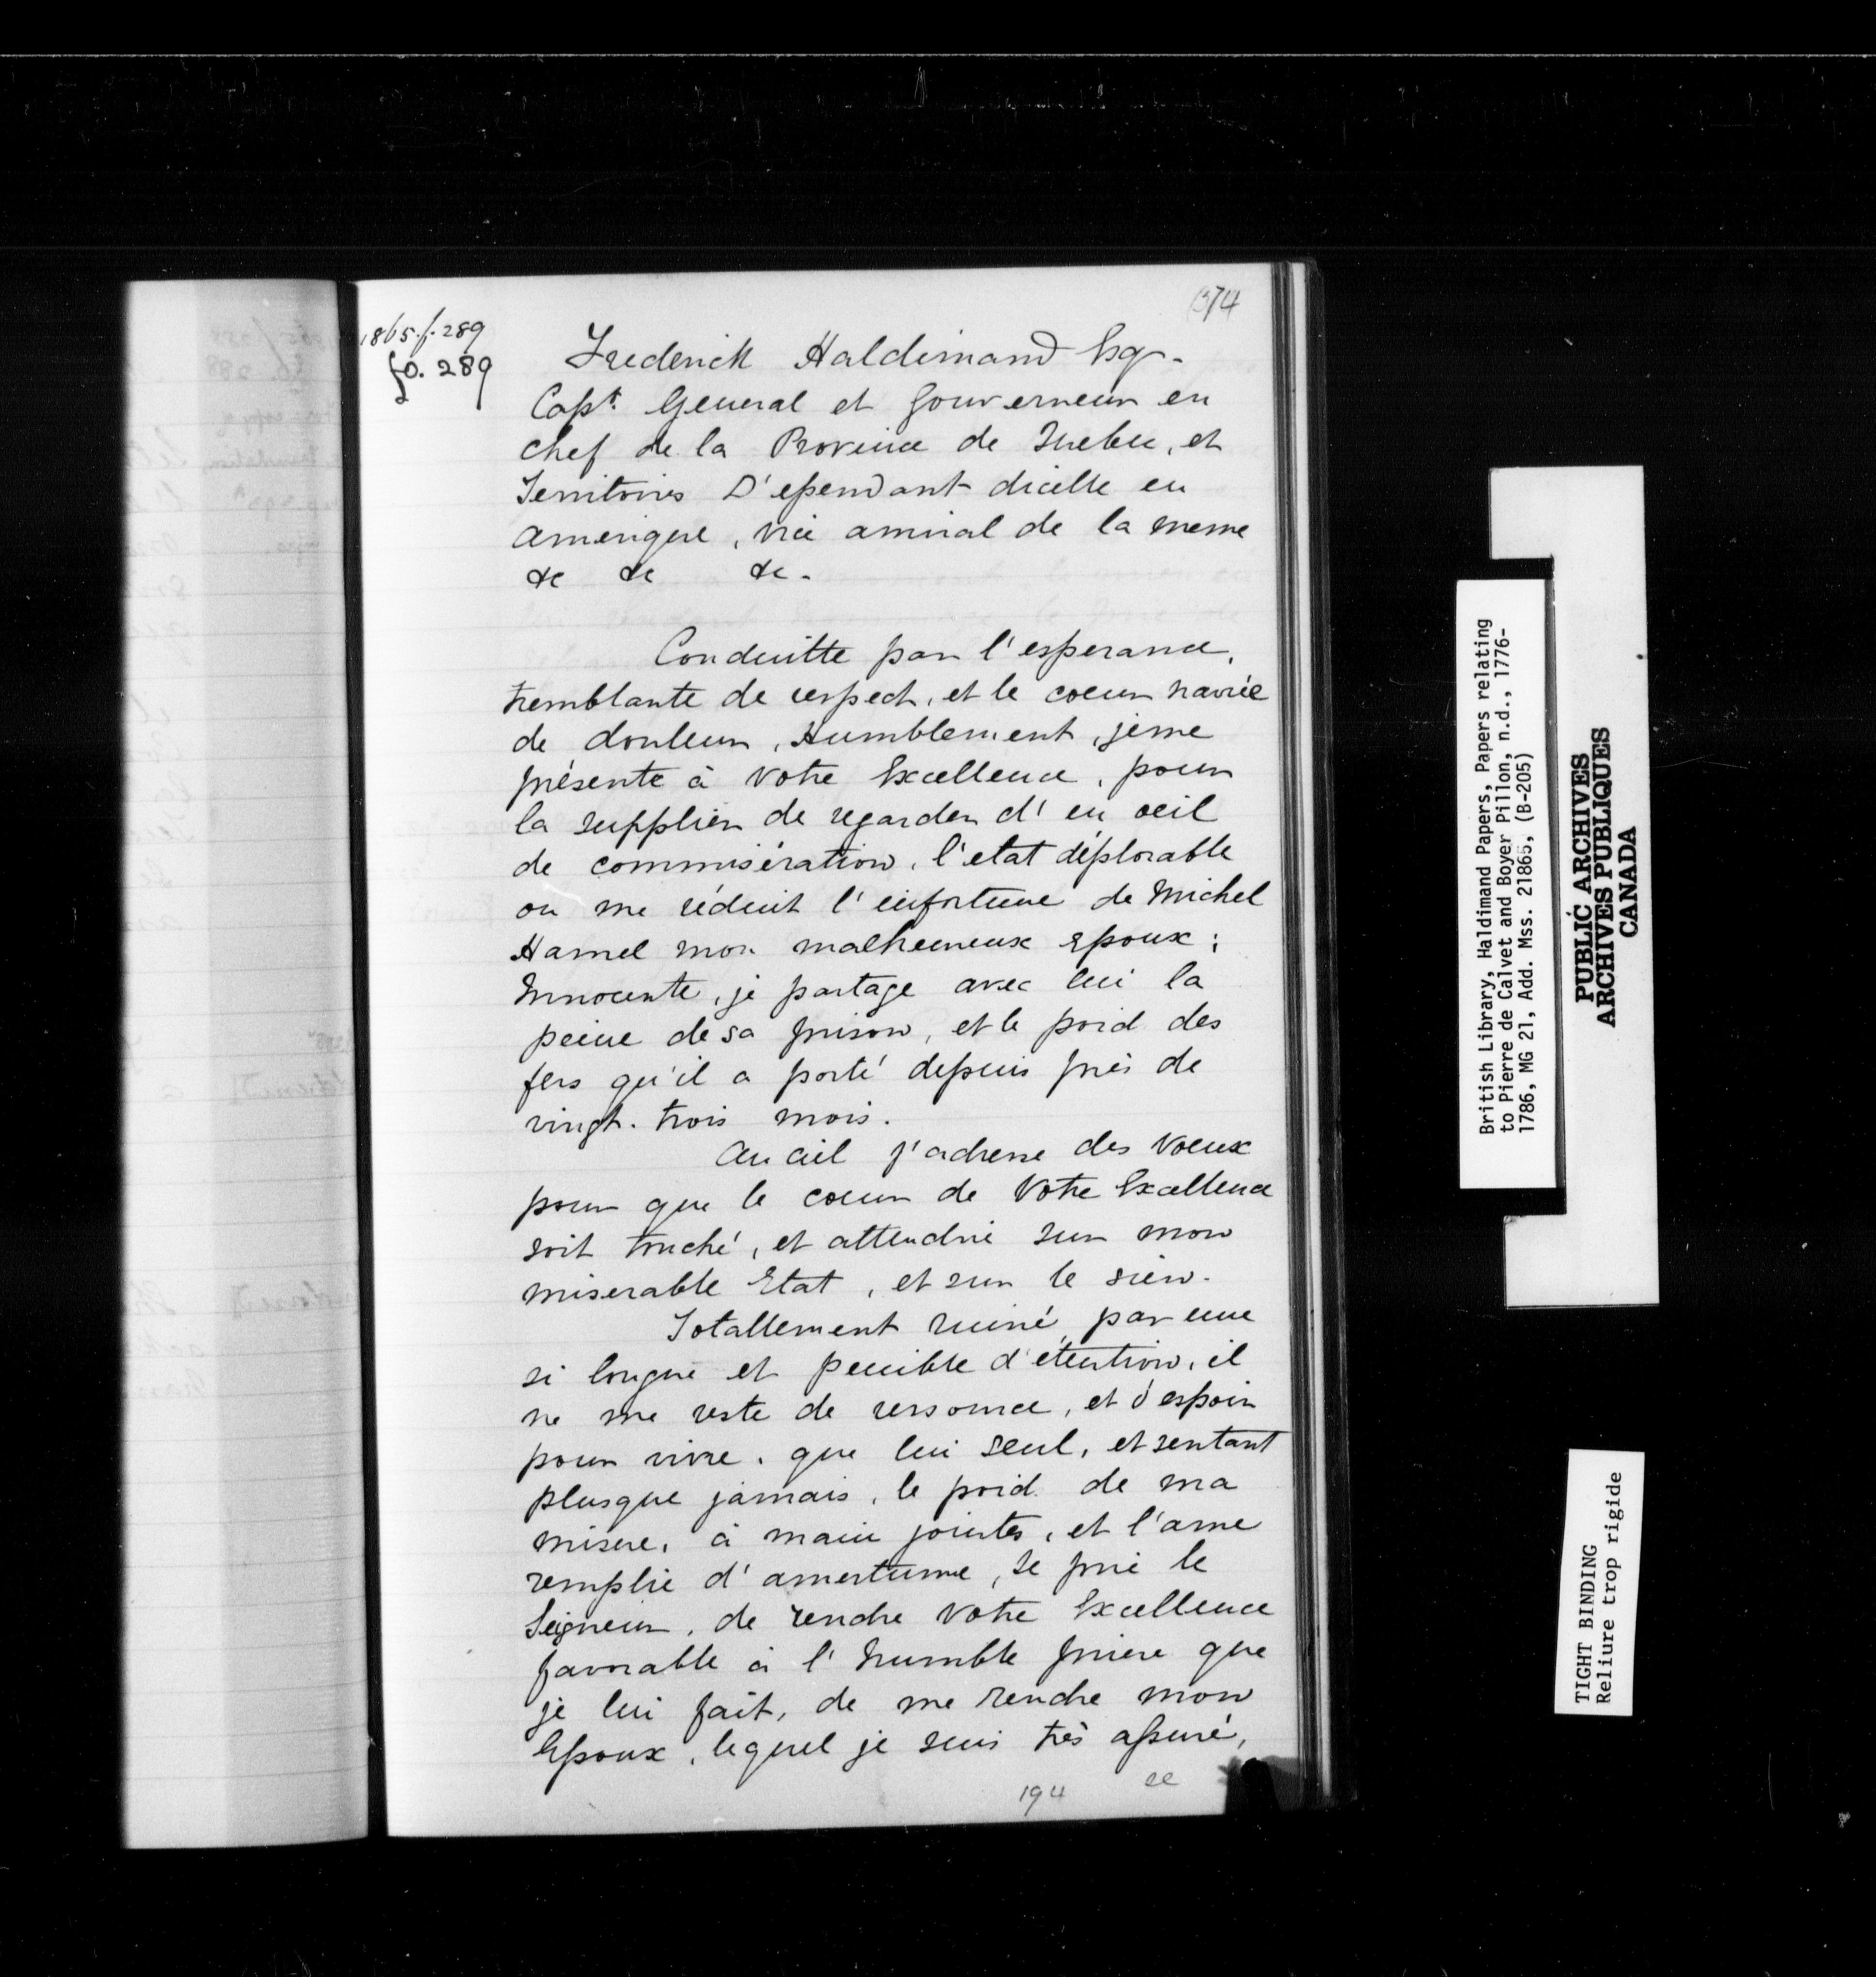 374
1865.f.289
fo. 289
Frederick Haldimand Esqr.
Capt. General et Gouverneur en
chef de la Province de Quebec, et
Territoires D'ependant dicelle en
Amerique, vice amiral de la meme
&c &c &c.
Conduitte par l'esperance,
tremblante de respect, et le coeur navrée
de douleur, Humblement, jeme
présente à Votre Excellence, pour
la supplier de regarder d'un oeil
de commisération, l'etat déplorable
ou me réduit l'infortune de Michel
Hamel mon malheureux epoux;
Innocente, je partage avec lui la
peine de sa prison, et le poid des
fers qu'il a porté depuis près de
vingt. trois mois.
Au ciel j'adresse des Voeux
pour que le coeur de Votre Excellence
soit touché, et attendrie sur mon
miserable Etat, et sur le sien.
Totallement ruiné, par une
si longue et penible d'étention, il
ne me reste de ressource, et d'espoir
pour vivre, que lui seul, et sentant
plusque jamais, le poid de ma
misere, à main jointes, et l'ame
remplie d'amertume, Je prie le
Seigneur, de rendre Votre Excellence
favorable à l'humble priere que
je lui fait, de me rendre mon
Epoux, lequel je suis très assuré,
se
194
British Library, Haldimand Papers, Papers relating
to Pierre de Calvet and Boyer Pillon, n.d., 1776-
1786, MG 21, Add. Mss. 21865, (B-205)
PUBLIC ARCHIVES
ARCHIVES PUBLIQUES
CANADA
TIGHT BINDING
Reliure trop rigide